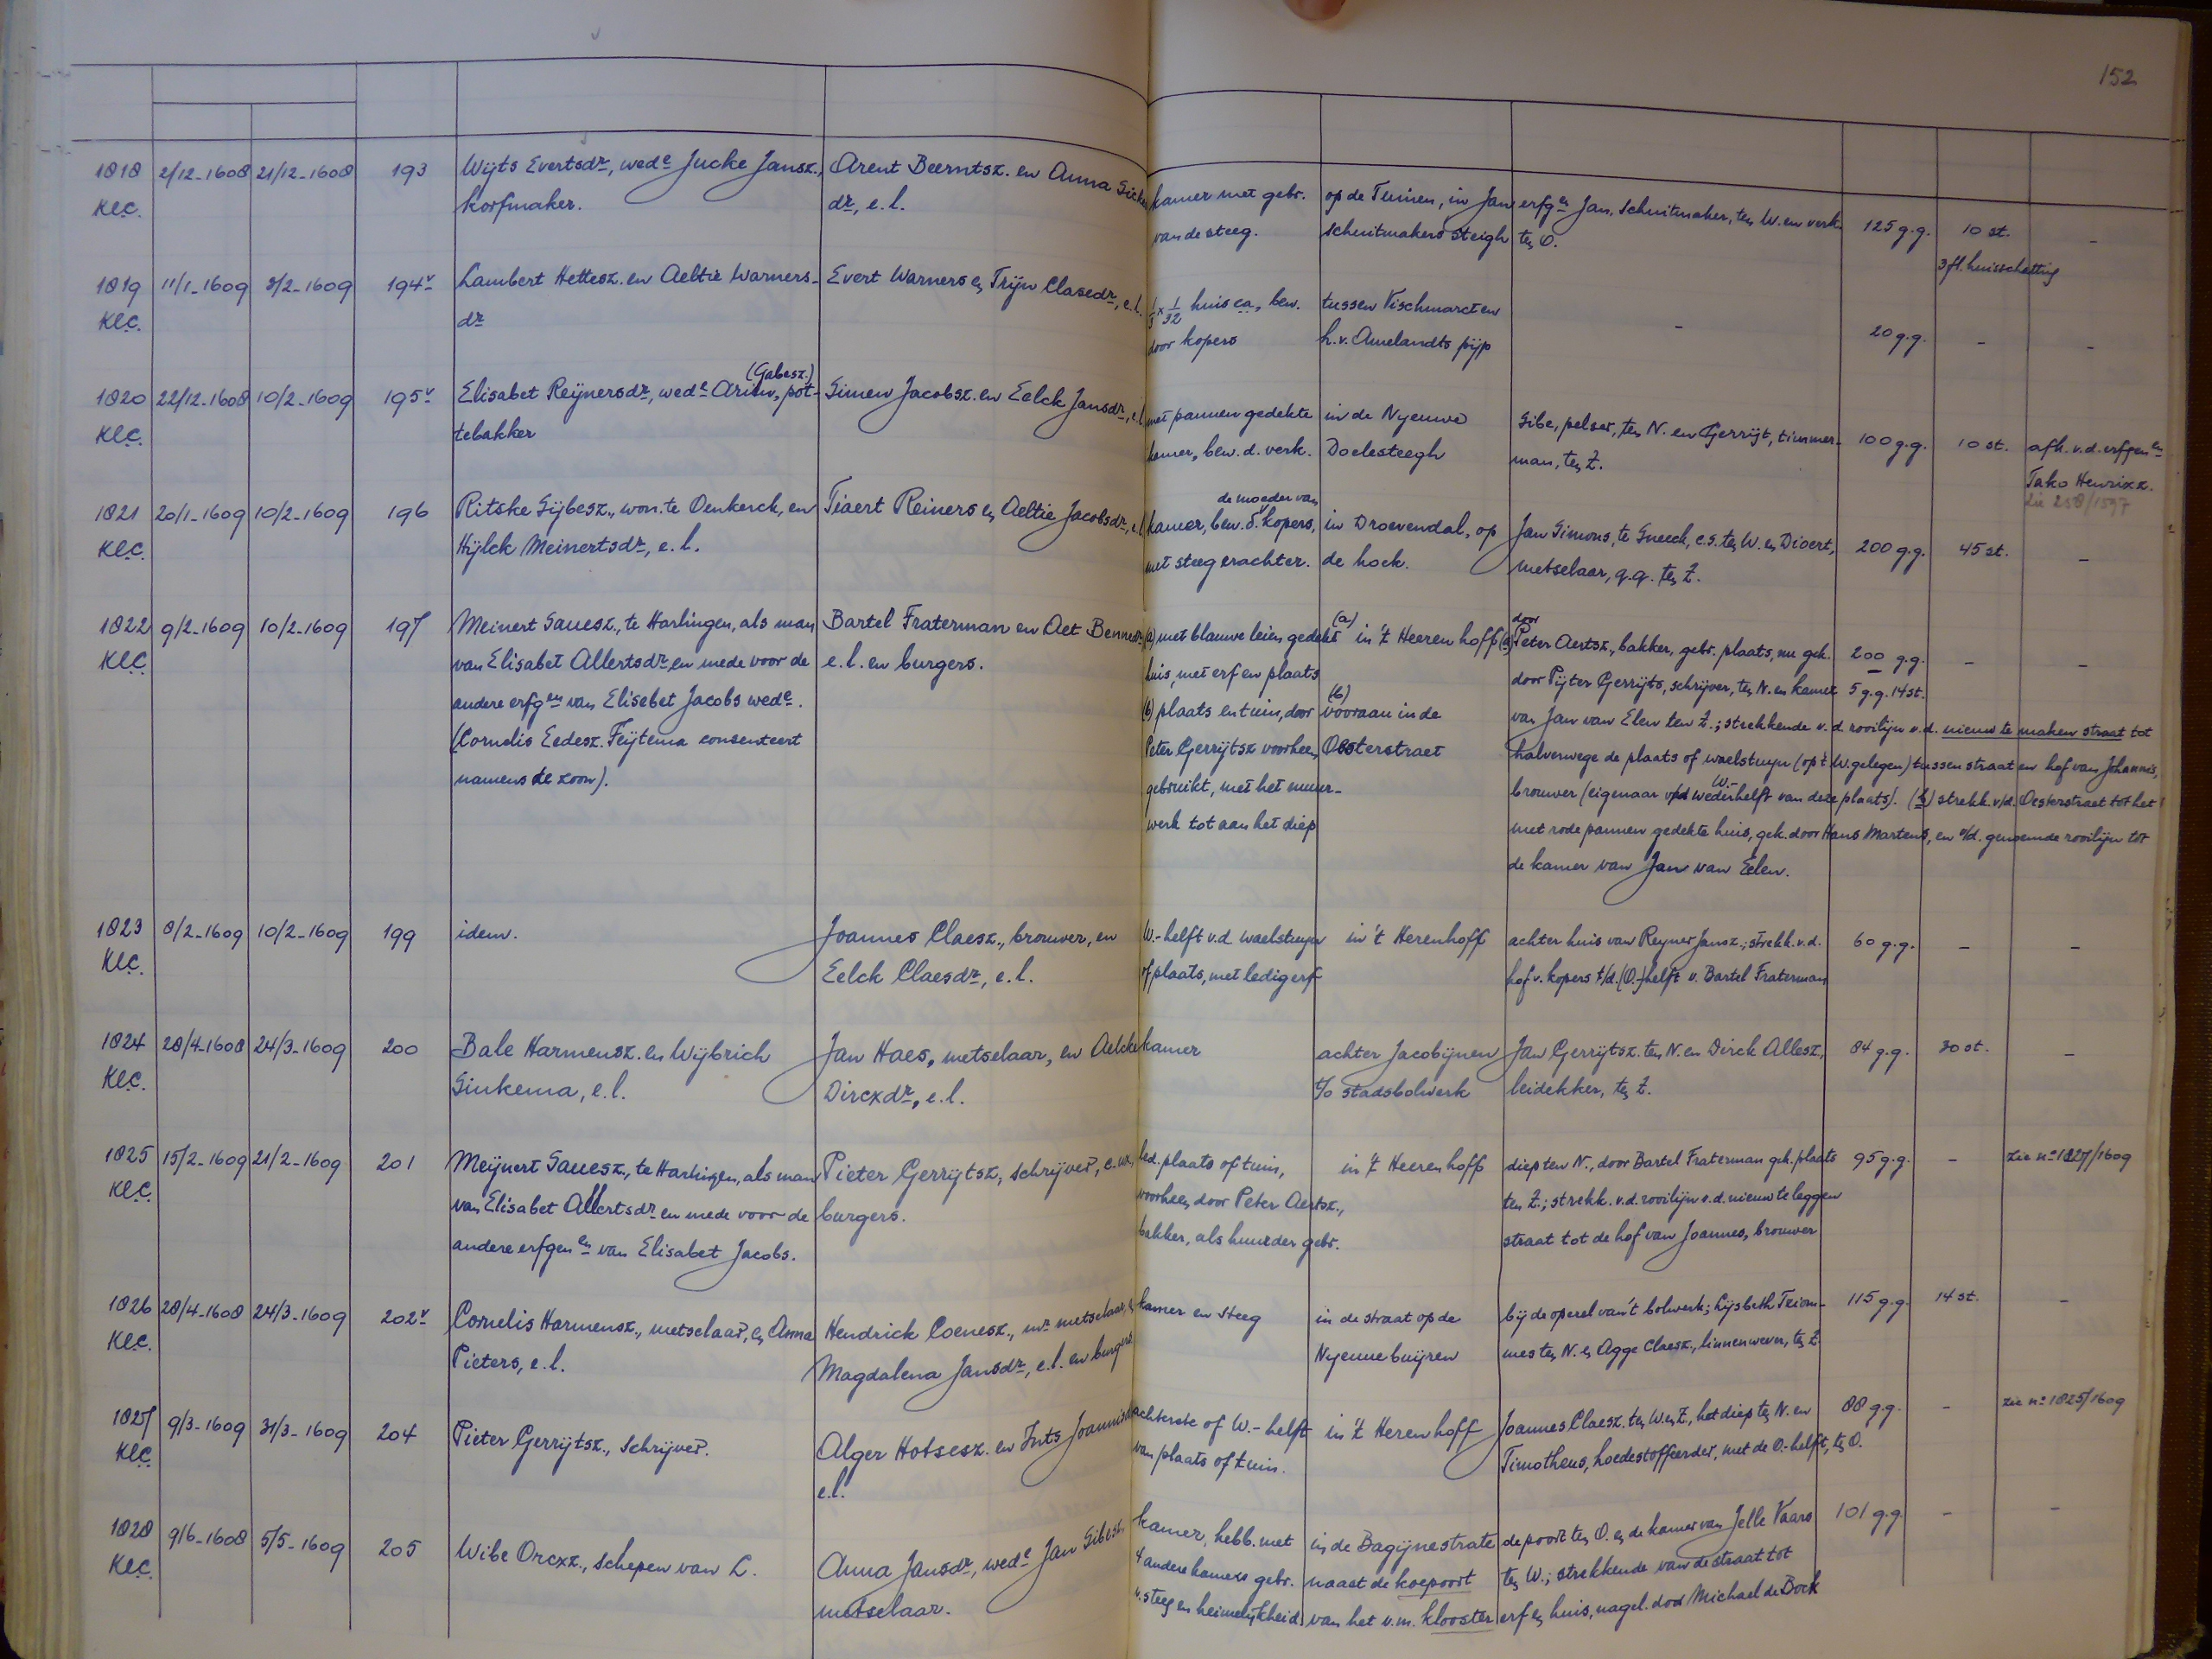 152
1818 2/12-1608 21/12-1608 193 Wijts Evertsdr, wede Jucke Jansz., Arent Beerntsz. en Anna kamer met gebr. op de Tuinen, in Jan erfgen Jan, Schuitmaker, ten W. en verk. 125 g.g. 10 st. -
Klc. korfmaker. dr, e.l. van de steeg. schuitmakers steigh ten O. 3 fl. huisschatting
1819 11/1-1609 8/2-1609 194v Lambert Hettesz. en Aeltie Warners- Evert Warners en Trijn Clasedr, e.l. 1/3 x 1/32 huis c.a., bew. tussen Vischmarct en - 20 g.g. - -
Klc. dr door kopers h.v. Amelandts pijp
(Gabesz.)
1820 22/12-1608 10/2-1609 195v Elisabet Reijnersdr, wede Ariaen, pot- Simen Jacobsz. en Eelck Jansdr, e.l. met pannen gedekte in de Nyeuwe Sibe, pelser, ten N. en Gerrijt, timmer- 100 g.g. 10 st. afk. v.d. erfgenen
Klc. tebakker kamer, bew. d. verk. Doelesteegh man, ten Z. Tako Henrixz.
zie 258/1597
de moeder van
1821 20/1-1609 10/2-1609 196 Ritske Sijbesz., won. te Oenkerck, en Tiaert Reiners en Aeltie Jacobsdr, e.l. kamer, bew. d. kopers, in Droevendal, op Jan Simons, te Sneeck, c.s. ten W. en Dioert, 200 g.g. 45 st. -
Klc. Hijlck Meinertsdr, e.l. met steeg erachter. de hoek. metselaar, q.q. ten Z.
1822 9/2-1609 10/2-1609 197 Meinert Sauesz., te Harlingen, als man Bartel Fraterman en Aet (a) met blauwe leien gedekt (a) in 't Heeren hoff (a) door Peter Aertsz., bakker, gebr. plaats, nu gek. 200 g.g. - -
Klc. van Elisabet Allertsdr en mede voor de e.l. en burgers. huis, met erf en plaats door Pijter Gerrijts, schrijver, ten N. en kamer 5 g.g. 14 st.
andere erfgen van Elisebet Jacobs wede. (b) plaats en tuin, door (b) vooraan in de van Jan van Elen ten Z.; strekkende v.d. rooilijn v.d. nieuw te maken straat tot
(Cornelis Eedesz. Feijtema consenteert Peter Gerrijtsz voorheen Oosterstraet halverwege de plaats of waelstuyn (op 't W. gelegen) tussen straat en hof van Johannes,
namens de zoon). gebruikt, met het muur- brouwer (eigenaar v/d W.- wederhelft van deze plaats). (b) strekk. v/d. Oesterstraet tot het
werk tot aan het diep met rode pannen gedekte huis, gek. door Hans Martens, en v/d. genoemde rooilijn tot
de kamer van Jan van Eelen.
1823 8/2-1609 10/2-1609 199 idem. Joannes Claesz., brouwer, en W.-helft v.d. waelstuyn in 't Herenhoff achter huis van Reyner Jansz.; strekk. v.d. 60 g.g. - -
Klc. Eelck Claesdr, e.l. of plaats, met ledig erf hof v. kopers t/d. (O.-)helft v. Bartel Fraterman
1824 28/4-1608 24/3-1609 200 Bale Harmensz. en Wijbrich Jan Haes, metselaar, en Aelcke kamer achter Jacobijnen Jan Gerrijtsz. ten N. en Dirck Allesz., 84 g.g. 30 st. -
Klc. Sinkema, e.l. Dircxdr, e.l. t/o stadsbolwerk leidekker, ten Z.
1825 15/2-1609 21/2-1609 201 Meijnert Sauesz., te Harlingen, als man Pieter Gerrijtsz, schrijver, c. ux., led. plaats of tuin, in 't Heerenhoff diep ten N., door Bartel Fraterman gek. plaats 95 g.g. - zie no 1827/1609
Klc. van Elisabet Allertsdr en mede voor de burgers. voorheen door Peter Aertsz., ten Z.; strekk. v.d. rooilijn v.d. nieuw te leggen
andere erfgenen van Elisabet Jacobs. bakker, als huurder gebr. straat tot de hof van Joannes, brouwer
1826 28/4-1608 24/3-1609 202v Cornelis Harmensz., metselaar, en Anna Hendrick Coenesz., mr metselaar, en kamer en steeg in de straat op de bij de operel van 't bolwerk; Lijsbeth Teiom- 115 g.g. 14 st. -
Klc. Pieters, e.l. Magdalena Jansdr, e.l. en burgers Nyeuwebuijren mes ten N. en Agge Claesz., linnenwever, ten Z.
1827 9/3-1609 31/3-1609 204 Pieter Gerrijtsz., Schrijver. Alger Hotsesz. en Ints Joannisdr achterste of W.-helft in 't Herenhoff Joannes Claesz. ten W. en Z., het diep ten N. en 88 g.g. - zie no 1825/1609
Klc. e.l. van plaats of tuin. Timotheus, hoedestoffeerder, met de O.-helft, ten O.
1828 9/6-1608 5/5-1609 205 Wibe Orcxz., schepen van L. Anna Jansdr, wede Jan Sibesz. kamer, hebb. met in de Bagijnestrate de poort ten O. en de kamer van Jelle Vaars 101 g.g. - -
Klc. metselaar. 4 andere kamers gebr. naast de koepoort ten W.; strekkende van de straat tot
v. steeg en heimelijkheid van het v.m. klooster erf en huis, nagel. door Michael de Bock